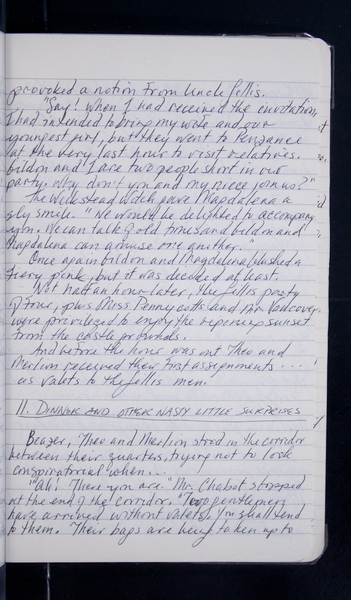 provoked a notion from Uncle Fellis.
"Say! When I had received the invitation,
I had intended to bring my wife and our
youngest girl, but they went to Penzance
at the very last hour to visit relatives.
Eildon and I are two people short in our
party. Why don't you and my niece join us?"
The Wickstead Witch gave Magdalena a
sly smile. "We would be delighted to accompany
you. We can talk of old times and Eildon and
Magdalena can amuse one another."
Once again Eildon and Magdalena blushed a
fiery pink, but it was decided at last.
Not half an hour later, the Fellis party
of four, plus Miss Pennycotts and Mr. Vancouver
were privileged to enjoy the ripening sunset
from the castle grounds.
And before the hour was out Theo and
Merlion received their first assignments...
as valets to the Fellis men.
11. DINNER AND OTHER NASTY LITTLE SURPRISES
Beazer, Theo and Merlion stood in the corridor
between their quarters, trying not to look
conspiratorial when...
"Ah! There you are." Mr. Chabot stopped
at the end of the corridor. "Two gentlemen
have arrived without valets. You shall tend
to them. Their bags are being taken up to